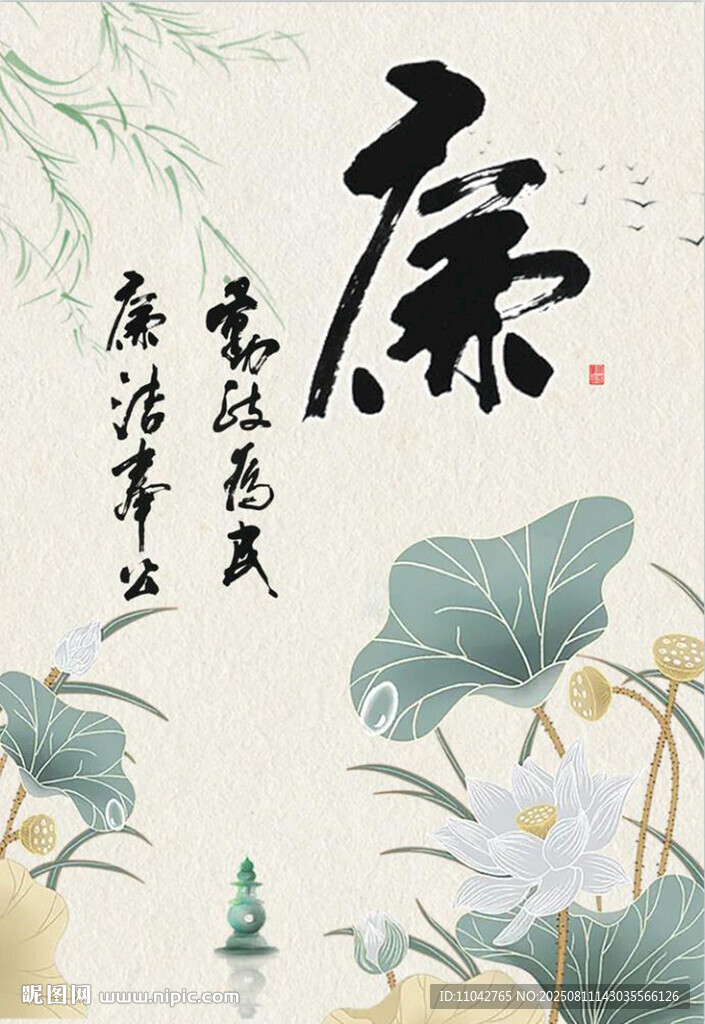 廉
勤政為民
廉洁奉公
昵图网 www.nipic.com
ID:11042765 NO:20250811143035566126